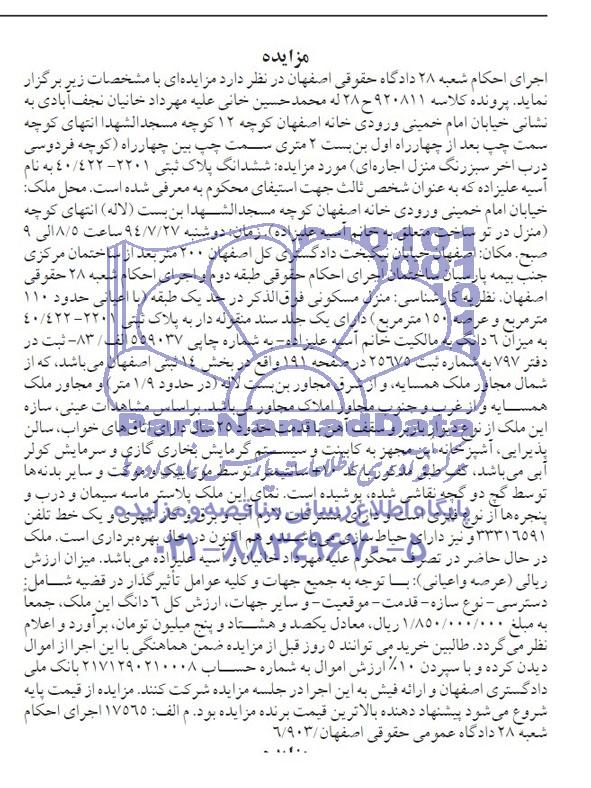 مزایده
اجرای احکام شعبه ۲۸ دادگاه حقوقی اصفهان در نظر دارد مزایده‌ای با مشخصات زیر برگزار
نماید. پرونده کلاسه ۹۲۰۸۱۱ ح۲۸ له محمدحسین خانی علیه مهرداد خانیان نجف‌آبادی به
نشانی خیابان امام خمینی ورودی خانه اصفهان کوچه ۱۲ کوچه مسجدالشهدا انتهای کوچه
سمت چپ بعد از چهارراه اول بن‌بست ۲ متری ســمت چپ بین چهارراه (کوچه فردوسی
درب اخر سبزرنگ منزل اجاره‌ای) مورد مزایده: ششدانگ پلاک ثبتی ۲۲۰۱- ۴۰/۴۲۲ به نام
آسیه علیزاده که به عنوان شخص ثالث جهت استیفای محکوم به معرفی شده است. محل ملک:
خیابان امام خمینی ورودی خانه اصفهان کوچه مسجدالشــهدا بن‌بست (لاله) انتهای کوچه
(منزل در تو ساخت متعلق به خانم آسیه علیزاده). زمان: دوشنبه ۹۴/۷/۲۷ ساعت ۸/۵ الی ۹
صبح. مکان: اصفهان خیابان نیکبخت دادگستری کل اصفهان ۲۰۰ متر بعد از ساختمان مرکزی
جنب بیمه پارسیان ساختمان اجرای احکام حقوقی طبقه دوم اجرای احکام شعبه ۲۸ حقوقی
اصفهان. نظریه کارشناسی: منزل مسکونی فوق‌الذکر در حد یک طبقه (با اعیانی حدود ۱۱۰
مترمربع و عرصه ۱۵۰ مترمربع) دارای یک جلد سند منقوله دار به پلاک ثبتی ۲۲۰۱- ۴۰/۴۲۲
به میزان ۶ دانگ به مالکیت خانم آسیه علیزاده- به شماره چاپی ۵۵۹۰۳۷ الف/ ۸۳- ثبت در
دفتر ۷۹۷ به شماره ثبت ۲۵۶۷۵ در صفحه ۱۹۱ واقع در بخش ۱۴ ثبتی اصفهان می‌باشد، که از
شمال مجاور ملک همسایه، و از شرق مجاور بن‌بست لاله (در حدود ۱/۹ متر) و مجاور ملک
همســایه و از غرب و جنوب مجاور املاک مجاور می‌باشد. براساس مشاهدات عینی، سازه
این ملک از نوع دیوار باربر و سقف آهن با قدمت حدود ۲۵ سال دارای اتاق‌های خواب، سالن
پذیرایی، آشپزخانه اپن مجهز به کابینت و سیســتم گرمایش بخاری گازی و سرمایش کولر
آبی می‌باشد، کف طور مذکور با کد سانتیمتر، توسط موزاییک و موکت و سایر بدنه‌ها
توسط گچ دو گچه نقاشی شده، پوشیده است. نمای این ملک پلاستر ماسه سیمان و درب و
پنجره‌ها از نوع فلزی است و دارای مشترکات لازم آب و برق و گاز شهری و یک خط تلفن
۳۳۳۱۶۵۹۱ و نیز دارای حیاط سازی می‌باشد و هم اکنون در حال بهره‌برداری است. ملک
در حال حاضر در تصرف محکوم علیه مهرداد خانیان و آسیه علیزاده می‌باشد. میزان ارزش
ریالی (عرصه واعیانی): بــا توجه به جمیع جهات و کلیه عوامل تأثیرگذار در قضیه شامل:
دسترسی- نوع سازه- قدمت- موقعیت- و سایر جهات، ارزش کل ۶ دانگ این ملک، جمعا
به مبلغ ۱/۸۵۰/۰۰۰/۰۰۰ ریال، معادل یکصد و هشــتاد و پنج میلیون تومان، برآورد و اعلام
نظر می‌گردد. طالبین خرید می توانند ۵ روز قبل از مزایده ضمن هماهنگی با این اجرا از اموال
دیدن کرده و با سپردن ۱۰٪ ارزش اموال به شماره حســاب ۲۱۷۱۲۹۰۲۱۰۰۰۸ بانک ملی
دادگستری اصفهان و ارائه فیش به این اجرا در جلسه مزایده شرکت کنند. مزایده از قیمت پایه
شروع می‌شود پیشنهاد دهنده بالاترین قیمت برنده مزایده بود. م الف: ۱۷۵۶۵ اجرای احکام
شعبه ۲۸ دادگاه عمومی حقوقی اصفهان/ ۶/۹۰۳
ParsNamadData
پایگاه اطلاع رسانی مناقصه و مزایده
۰۲۱-۸۸۳۴۹۶۷۰-۵